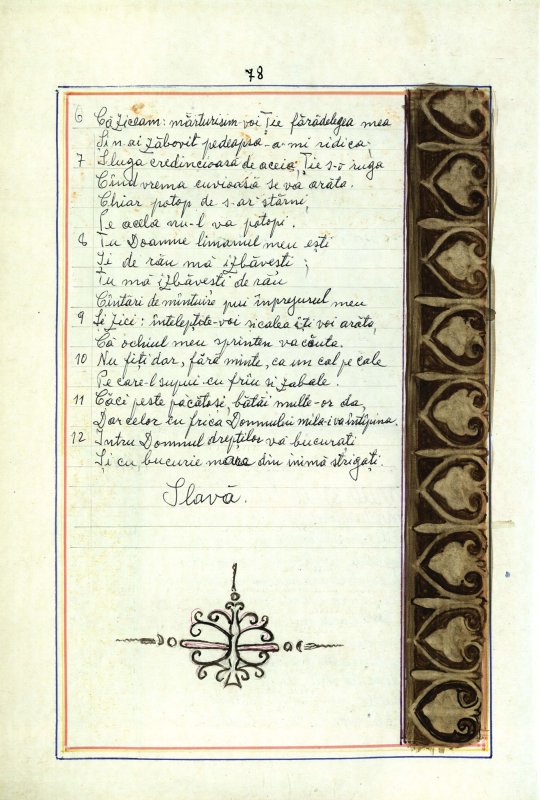 78
6 Că ziceam: mărturisim-voi Ție fărădelegea mea
Și n-ai zăbovit pedeapsa-a-mi ridica;
7 Sluga credincioasă de aceia, Ție s-o ruga
Cînd vrema cuvioasă se va arăta.
Chiar potop de s-ar stârni,
Pe acela nu-l va potopi.
8 Tu Doamne limanul meu ești
Și de rău mă izbăvești;
Tu mă izbăvești de rău
Cîntări de mîntuire pui împrejurul meu
9 Și zici: înțelepțete-voi și calea iți voi arăta,
Că ochiul meu sprinten va căuta.
10 Nu fiți dar, fără minte, ca un cal pe cale
Pe care-l supui cu frîu si zabale.
11 Căci peste păcătosi, bătăi multe-or da
Dar celor cu frica Domnului mila-i va întîpina.
12 Intru Domnul drepților vă bucurati
Și cu bucurie mare din inimă strigați.
Slavă.